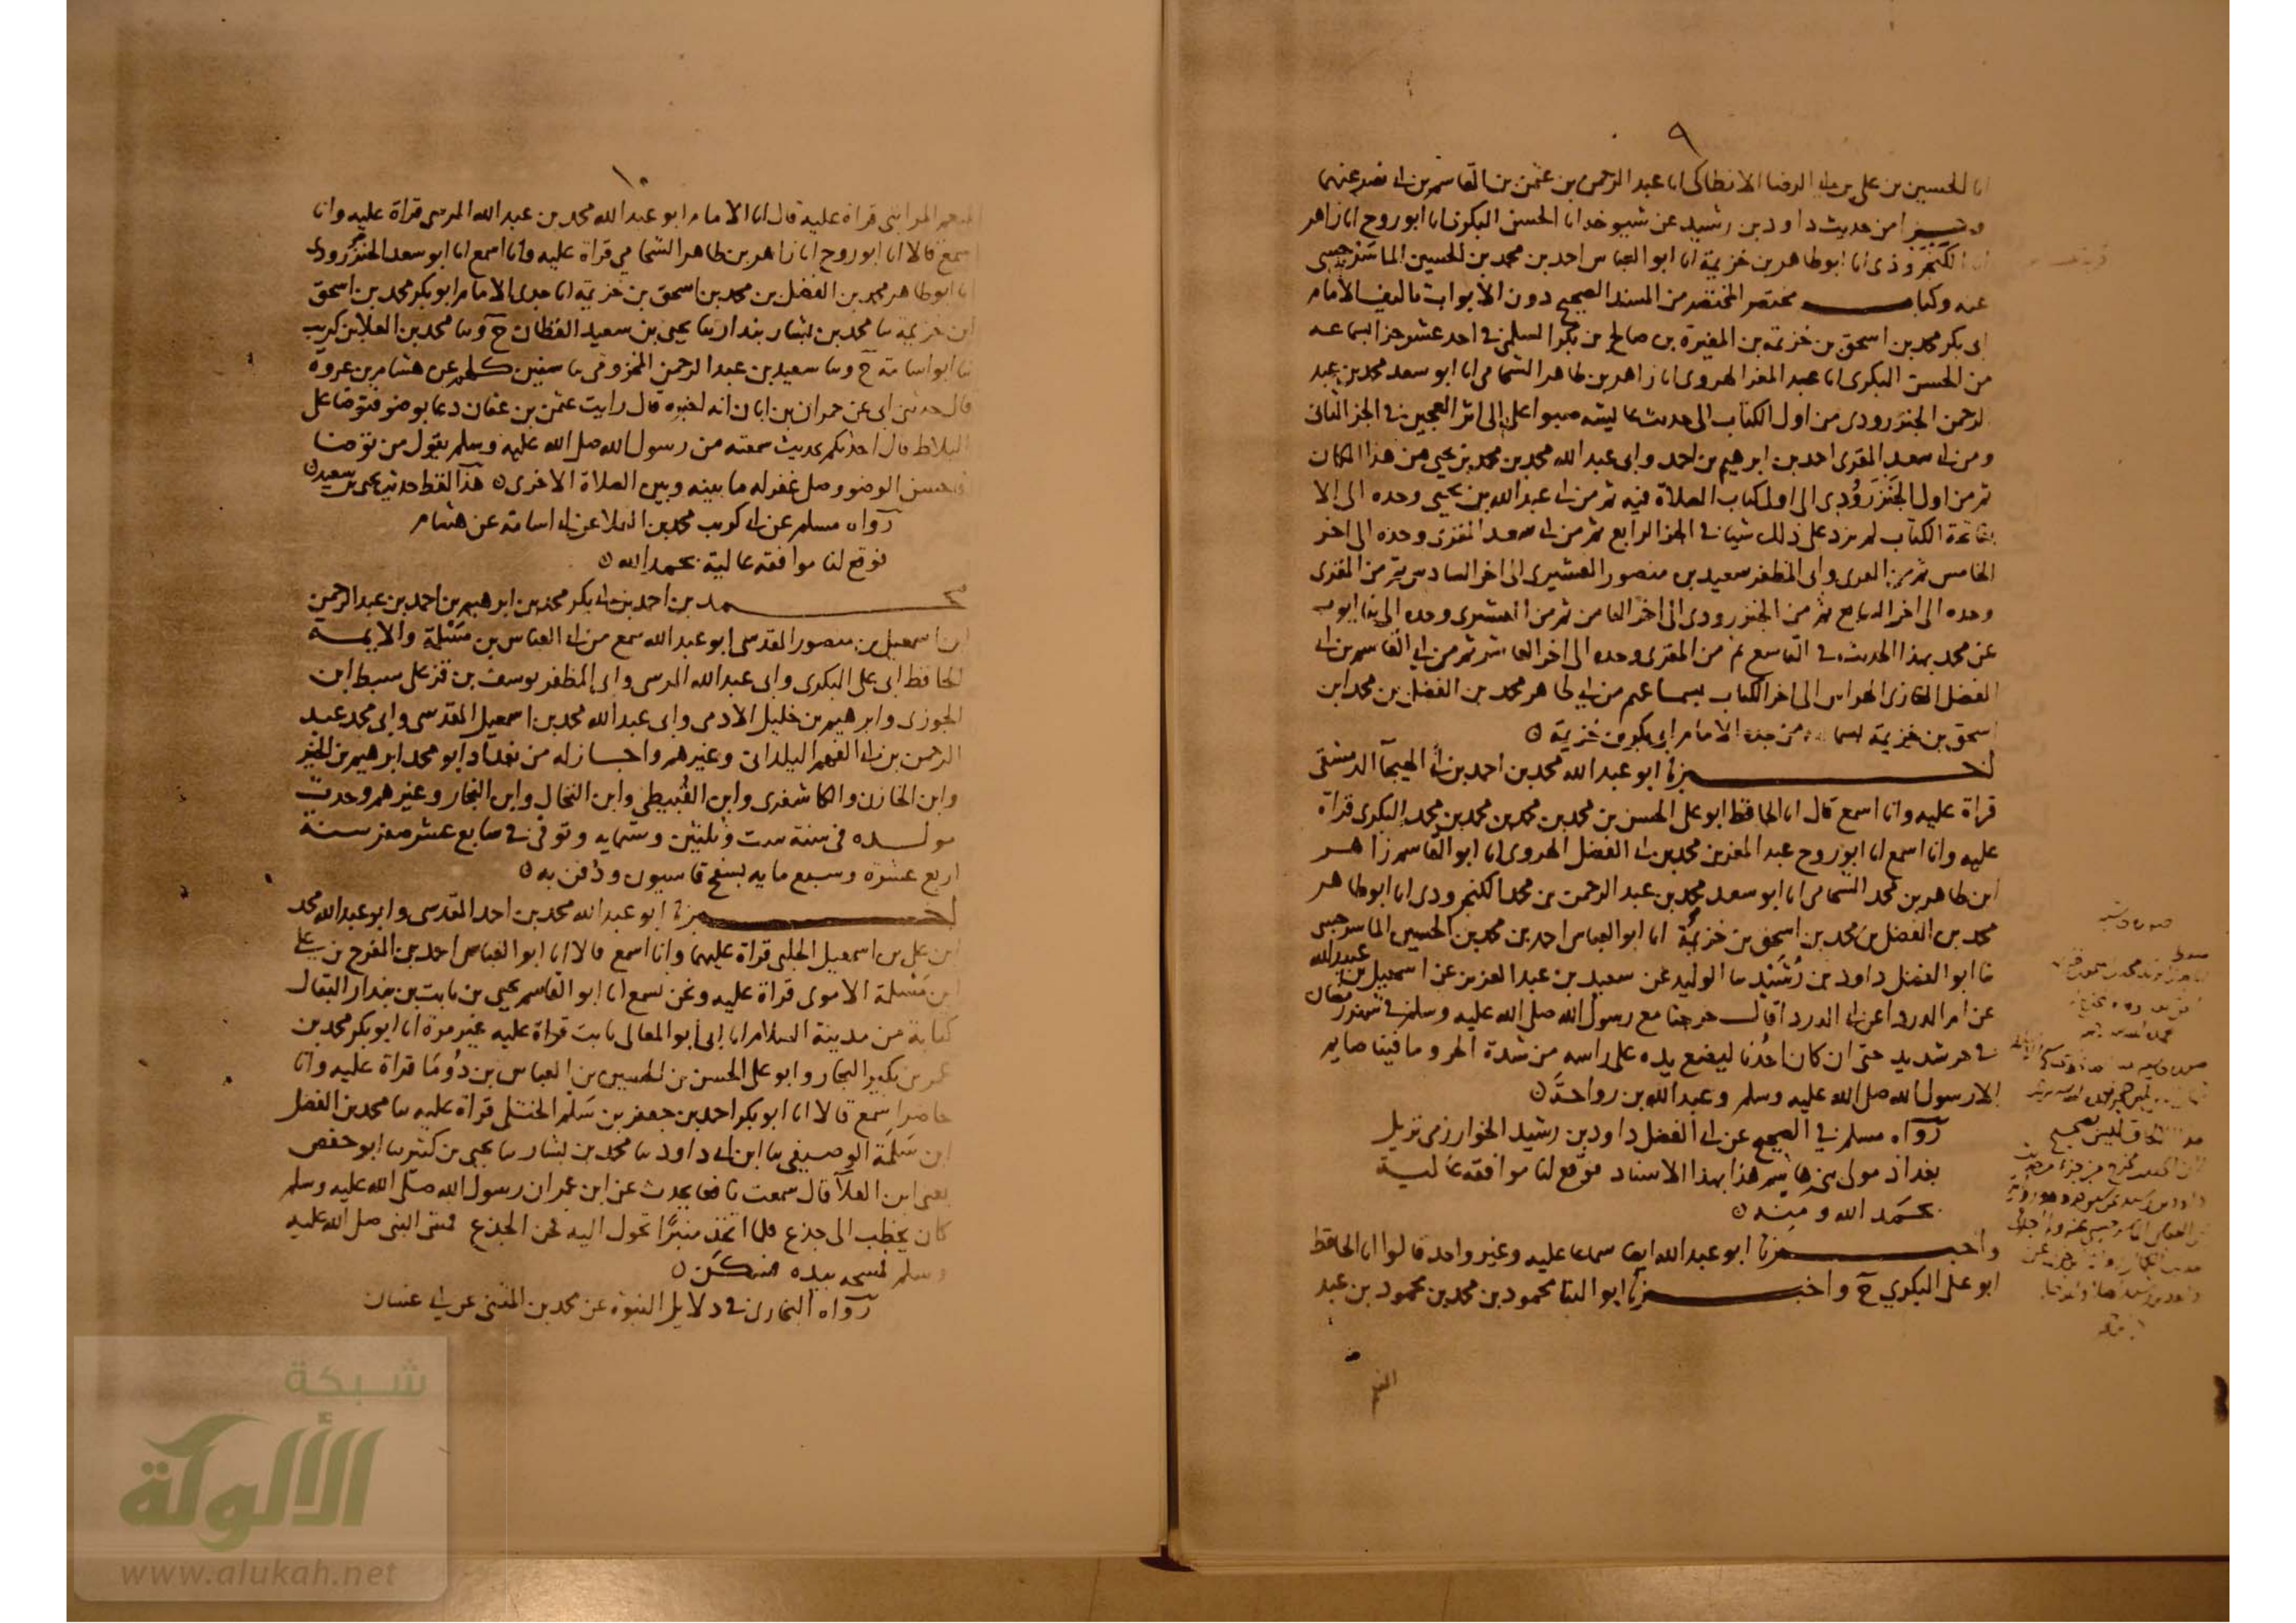 ٩
انا الحسين بن على بن ابى الرضا الانطاكى انا عبد الرحمن بن عثمن بن القاسم بن ابى نصر عنهما
من حديث داود بن رشيد عن شيوخه انا الحسن البكرى انا ابو روح انا زاهر
الكنجروذى انا ابو طاهر بن خزيمة انا ابو العباس احمد بن محمد بن الحسين الماسرجسى
عنه وكتاب مختصر المختصر من المسند الصحيح دون الأبواب تاليف الامام
ابى بكر محمد بن اسحق بن خزيمة بن المغيرة بن صالح بن بكر السلمى فى احد عشر جزا بسماعه
من الحسن البكرى انا عبد المعز الهروى انا زاهر بن طاهر الشحامى انا ابو سعد محمد بن عبد
الرحمن الجنزرودى من اول الكتاب الى حديث عايشه صبوا على الى اثر العجين فى الجز الثانى
ومن ابى سعد المقرى احمد بن ابرهيم بن احمد وابى عبد الله محمد بن محمد بن يحيى من هذا المكان
ثم من اول الجنزرودى الى اول كتاب الصلاة فيه ثم من ابى عبد الله بن يحيى وحده الى الا
بفاتحة الكتاب لم يزد على ذلك شيا فى الجز الرابع ثم من ابى سعد المقرى وحده الى اخر
الخامس ثم من المقرى وابى المظفر سعيد بن منصور القشيرى الى اخر السادس ثم من المقرى
وحده الى اخر السابع ثم من الجنزرودى الى اخر الثامن ثم من القشيرى وحده الى ثنا ايوب
عن محمد بهذا الحديث فى التاسع ثم من المقرى وحده الى اخر العاشر ثم من ابى القاسم بن ابى
الفضل الغازى الهراس الى اخر الكتاب بسماعهم من ابى طاهر محمد بن الفضل بن محمد ابن
اسحق بن خزيمة بسماعه من جده الامام ابى بكر بن خزيمة ه
اخبرنا ابو عبد الله محمد بن احمد بن ابى الهيجآ الدمشقى
قراة عليه وانا اسمع قال انا الحافظ ابو على الحسن بن محمد بن محمد بن محمد بن محمد البكرى قراة
عليه وانا اسمع انا ابو روح عبد المعز بن محمد بن ابى الفضل الهروى انا ابو القاسم زاهر
ابن طاهر بن محمد الشحامى انا ابو سعد محمد بن عبد الرحمن بن محمد الكنجرودى انا ابو طاهر
محمد بن الفضل بن محمد بن اسحق بن خزيمة انا ابو العباس احمد بن محمد بن الحسين الماسرجسى
ثنا ابو الفضل داود بن رشيد ثنا الوليد عن سعيد بن عبد العزيز عن اسمعيل بن عبيد الله
عن ام الدردا عن ابى الدردا قال خرجنا مع رسول الله صلى الله عليه وسلم فى شهر رمضان
فى حر شديد حتى ان كان احدنا ليضع يده على راسه من شدة الحر وما فينا صايم
الا رسول الله صلى الله عليه وسلم وعبد الله بن رواحة ه
رواه مسلم فى الصحيح عن ابى الفضل داود بن رشيد الخوارزمى نزيل
بغداذ مولى بنى هاشم هذا بهذا الاسناد فوقع لنا موافقة عالية
بحمد الله ومنه ه
واخبرنا ابو عبد الله ايضا سماعا عليه وغير واحد قالوا انا الحافظ
ابو على البكرى ح واخبرنا ابو الثنا محمود بن محمد بن محمود بن عبد
١٠
المنعم المراتبى قراة عليه قال انا الامام ابو عبد الله محمد بن عبد الله المرسى قراة عليه وانا
اسمع قالا انا ابو روح انا زاهر بن طاهر الشحامى قراة عليه وانا اسمع انا ابو سعد الجنزرودى
انا ابو طاهر محمد بن الفضل بن محمد بن اسحق بن خزيمة انا جدى الامام ابو بكر محمد بن اسحق
ابن خزيمة ثنا محمد بن بشار بندار ثنا يحيى بن سعيد القطان ح وثنا محمد بن العلا بن كريب
ثنا ابو اسامة ح وثنا سعيد بن عبد الرحمن المخزومى ثنا سفين كلهم عن هشام بن عروة
قال حدثنى ابى عن حمران بن ابان انه اخبره قال رايت عثمن بن عفان دعا بوضو فتوضا على
البلاط قال احدثكم بحديث سمعته من رسول الله صلى الله عليه وسلم يقول من توضا
فاحسن الوضو وصلى غفر له ما بينه وبين الصلاة الاخرى ه هذا لفظ حديث يحيى بن سعيد ه
رواه مسلم عن ابى كريب محمد بن العلا عن ابى اسامة عن هشام
فوقع لنا موافقة عالية بحمد الله ه
محمد بن احمد بن ابى بكر محمد بن ابرهيم بن احمد بن عبد الرحمن
ابن اسمعيل بن منصور المقدسى ابو عبد الله سمع من ابى العباس بن مسلمة والايمة
الحافظ ابى على البكرى وابى عبد الله المرسى وابى المظفر يوسف بن قزعلى سبط ابن
الجوزى وابرهيم بن خليل الادمى وابى عبد الله محمد بن اسمعيل المقدسى وابى محمد عبد
الرحمن بن ابى الفهم اليلدانى وغيرهم واجاز له من بغداد ابو محمد ابرهيم بن الخير
وابن الخازن والكاشغرى وابن القبيطى وابن النحال وابن النجار وغيرهم وحدث
مولده فى سنة ست وثلثين وستمايه وتوفى فى سابع عشر صفر سنة
اربع عشرة وسبع مايه بسفح قاسيون ودفن به ه
اخبرنا ابو عبد الله محمد بن احمد المقدسى وابو عبد الله محمد
ابن على بن اسمعيل الحلبى قراة عليهما وانا اسمع قالا انا ابو العباس احمد بن المفرج بن على
ابن مسلمة الاموى قراة عليه ونحن نسمع انا ابو القاسم يحيى بن ثابت بن بندار البقال
كتابة من مدينة السلام انا ابى ابو المعالى ثابت قراة عليه غير مرة انا ابو بكر محمد بن
عمر بن بكير النجار وابو على الحسن بن الحسين بن العباس بن دوما قراة عليه وانا
حاضر اسمع قالا انا ابو بكر احمد بن جعفر بن سلم الختلى قراة عليه ثنا محمد بن الفضل
ابن سلمة الوصيفى ثنا ابن ابى داود ثنا محمد بن بشار ثنا يحيى بن كثير ثنا ابو حفص
يعنى ابن العلآ قال سمعت نافعا يحدث عن ابن عمر ان رسول الله صلى الله عليه وسلم
كان يخطب الى جذع فلما اتخذ منبرا تحول اليه فحن الجذع فنزل النبى صلى الله عليه
وسلم فمسحه بيده فسكن ه
رواه البخارى فى دلايل النبوة عن محمد بن المثنى عن ابى غسان
شبكة
الألوكة
www.alukah.net